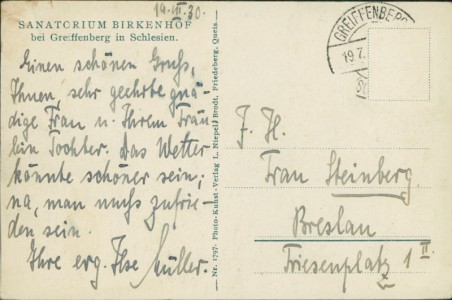 19.VII.30.
SANATORIUM BIRKENHOF
bei Greiffenberg in Schlesien.
Einen schönen Gruss,
Ihnen, sehr geehrte gnä-
dige Frau u. Ihrem Fräu
lein Tochter. Das Wetter
könnte schöner sein;
na, man muss zufrie-
den sein.
Ihre erg. Ilse Müller.
Nr. 1797. Photo-Kunst-Verlag L. Niepel, Brodt, Friedeberg, Queis
GREIFFENBERG
19.7.
Frau Steinberg
Breslau
Friesenplatz 1 II.